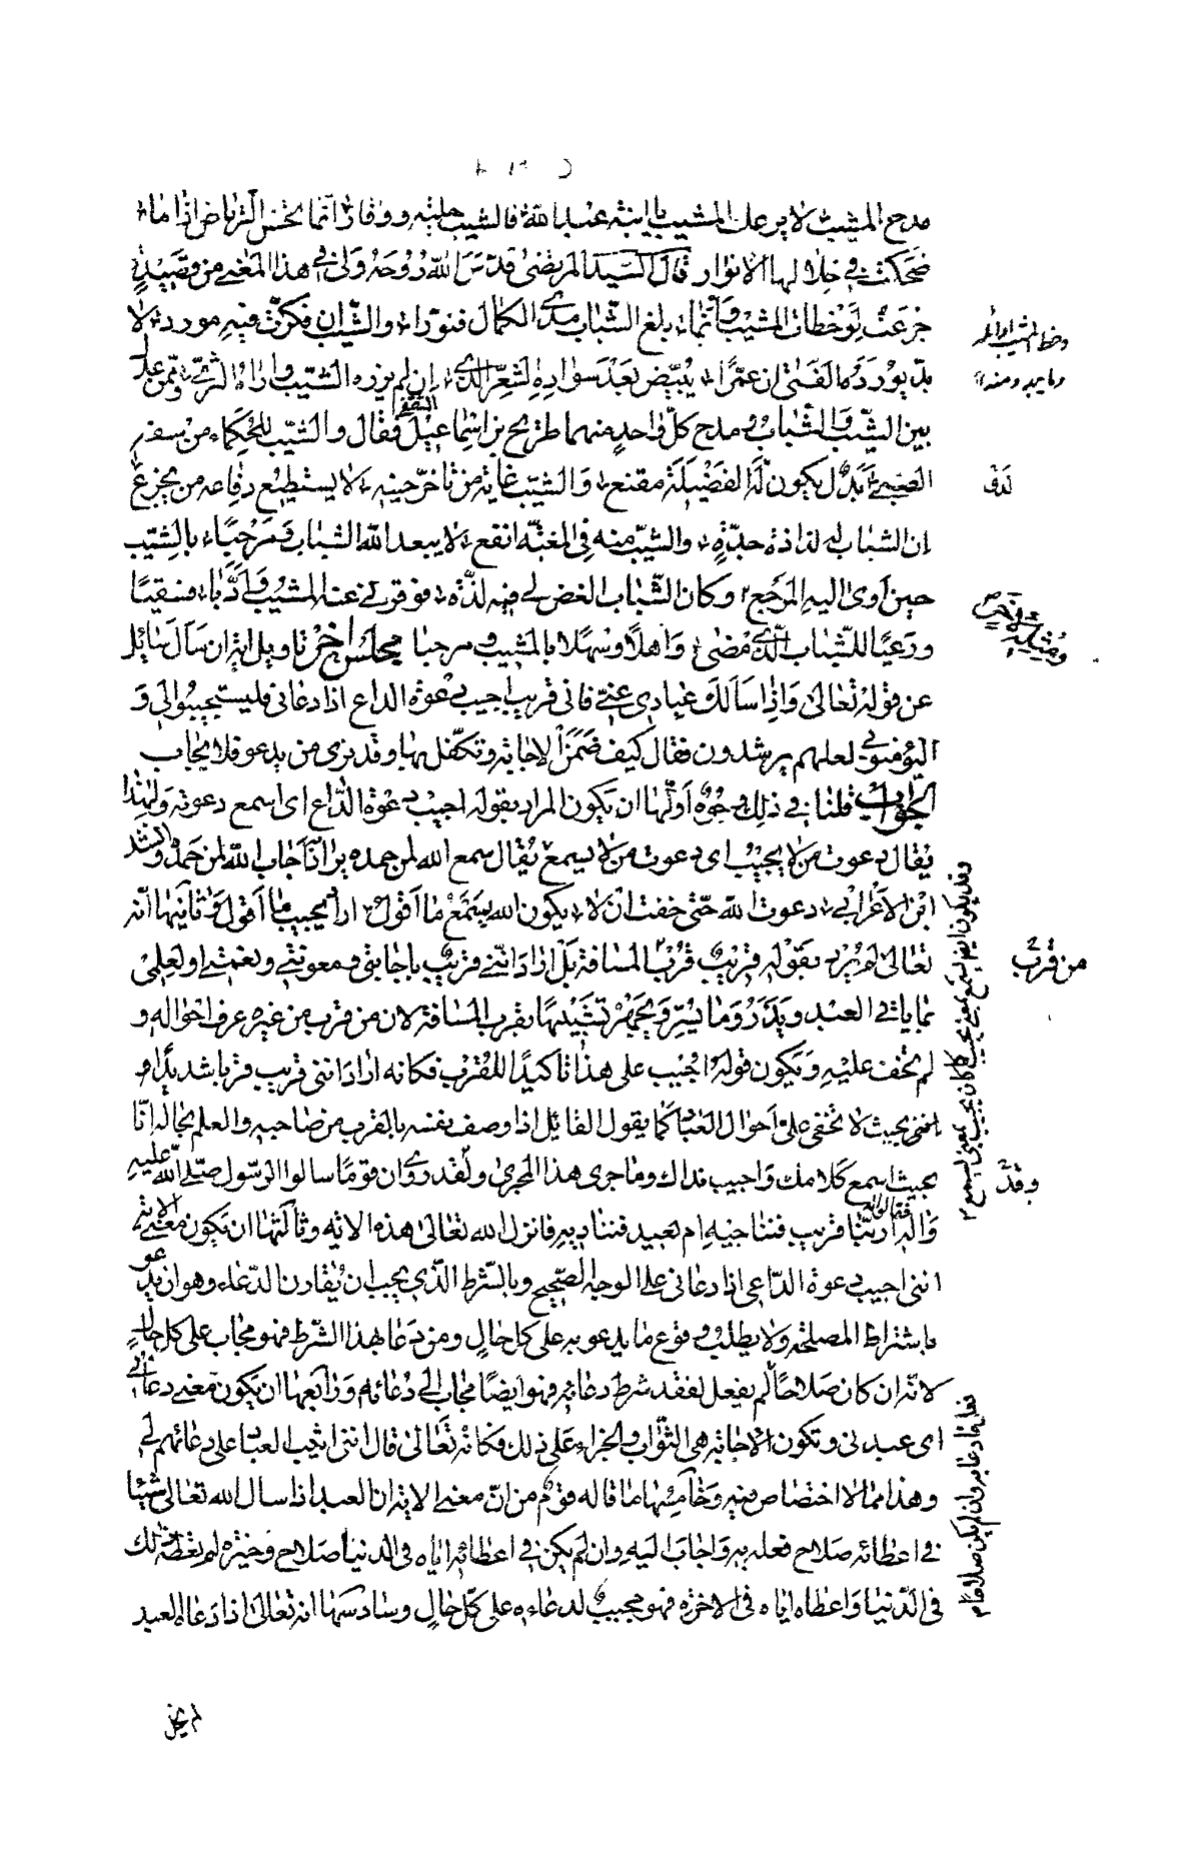 مدح المشيب لا يرعك المشيب يا ابنة عبد الله فالشيب حلية ووقار انما تحسن الرياض اذا ما
ضحكت في خلالها الانوار قال السيد المرتضى قدس الله روحه ولى في هذا المعنى من قصيدة
جزعت لوخطات المشيب وانما بلغ الشباب مدى الكمال فنورا والشيب ان فكرت فيه مورد لا
بد يورده الفتى ان عمرا يبيض بعد سواده الشعر الذى ان لم يزره الشيب واراه الثرى وممن عدل
بين الشيب والشباب في مدح كل واحد منهما طريح بن اسماعيل الثقفى فقال والشيب للحكماء من سفه
الصبى بدل يكون له الفضيلة مقنع والشيب غاية من تاخر حينه لا يستطيع دفاعه من يجزع
ان الشباب له لذاذة جدة والشيب منه في المغبة انفع لا يبعد الله الشباب فمرحبا بالشيب
حين اوى اليه المرجع وكان الشباب الغض لي فيه لذة فوقرني عنه المشيب وادبا فسقيا
ورعيا للشباب الذى مضى واهلا وسهلا بالمشيب مرحبا مجلس اخر تاويل اية ان سال سائل
عن قوله تعالى واذا سالك عبادى عنى فانى قريب اجيب دعوة الداع اذا دعانى فليستجيبوا لى و
اليؤمنوا بي لعلهم يرشدون فقال كيف ضمن الاجابة وتكفل بها وقد نرى من يدعو فلا يجاب
الجواب قلنا في ذلك وجوه اولها ان يكون المراد بقوله اجيب دعوة الداع اى اسمع دعوته ولهذا
يقال دعوت من لا يجيب اى دعوت من لا يسمع يقال سمع الله لمن حمده يراد اجاب الله لمن حمده وانشد
ابن الاعرابي دعوت الله حتى خفت ان لا يكون الله يسمع ما اقول اراد يجيب ما اقول وثانيها انه
تعالى لم يرد بقوله قريب قرب المسافة بل اراد اننى قريب باجابتى ومعونتى ونعمتى او لعلمى
بما ياتي العبد ويذر وما يسر ويجهر تشبيها بقرب المسافة لان من قرب من غيره عرف احواله و
لم تخف عليه ويكون قوله اجيب على هذا تاكيدا للقرب فكانه اراد اننى قريب قربا شديدا و
اننى بحيث لا تخفى على احوال العباد كما يقول القائل اذا وصف نفسه بالقرب من صاحبه والعلم بحاله انا
بحيث اسمع كلامك واجيب نداك وما جرى هذا المجرى ولقد روى ان قوما سالوا الرسول صلى الله عليه
واله فقالوا له اربنا قريب فنناجيه ام بعيد فنناديه فانزل الله تعالى هذه الاية وثالثها ان يكون معنى الاية
اننى اجيب دعوة الداعى اذا دعانى على الوجه الصحيح وبالشرط الذى يجب ان يقارن الدعاء وهو ان يدعو
باشتراط المصلحة ولا يطلب وقوع ما يدعو به على كل حال ومن دعا بهذا الشرط فهو مجاب على كل حال
لانه ان كان صلاحا لم يفعل لفقد شرط دعائه فهو ايضا مجاب الى دعائه ورابعها ان يكون معنى دعانى
اى عبدنى وتكون الاجابة هى الثواب والجزاء على ذلك فكانه تعالى قال اننى اثيب العباد على دعائهم لي
وهذا مما لا اختصاص فيه وخامسها ما قاله قوم من ان معنى الاية ان العبد اذا سال الله تعالى شيئا
في اعطائه صلاح فعله به واجابه اليه وان لم يكن في اعطائه اياه في الدنيا صلاح وخيرة لم يعطه ذلك
في الدنيا واعطاه اياه في الاخرة فهو مجيب لدعاءه على كل حال وسادسها انه تعالى اذا دعاه العبد
لدى
من قرب
وقد
وقد يكون ايضا يسمع بمعنى يجيب كما كان يجيب بمعنى يسمع
فعل ما دعا به وان لم يكن صلاحا
لم يخل